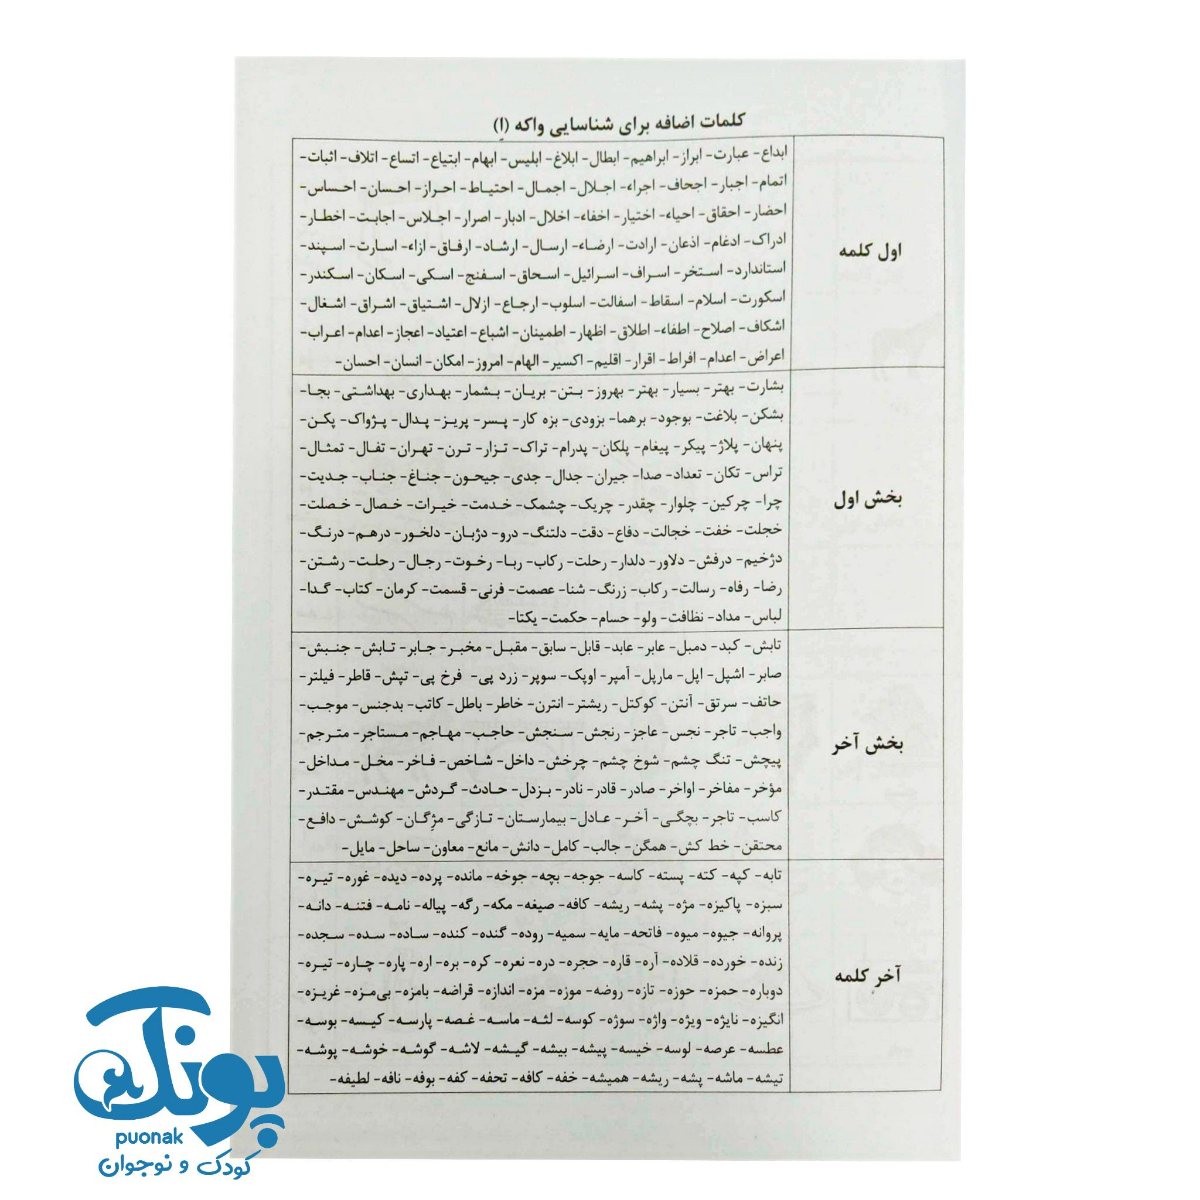 کلمات اضافه برای شناسایی واکه (اِ)
اول کلمه
ابداع- عبارت- ابراز- ابراهیم- ابطال- ابلاغ- ابلیس- ابهام- ابتیاع- اتساع- اتلاف- اثبات-
اتمام- اجبار- اجحاف- اجراء- اجلال- اجمال- احتیاط- احراز- احسان- احساس-
احضار- احقاق- احیاء- اختیار- اخفاء- اخلال- ادبار- اصرار- اجلاس- اجابت- اخطار-
ادراک- ادغام- اذعان- ارادت- ارضاء- ارسال- ارشاد- ارفاق- ازاء- اسارت- اسپند-
استاندارد- استخر- اسراف- اسرائیل- اسحاق- اسفنج- اسکی- اسکان- اسکندر-
اسکورت- اسلام- اسقاط- اسفالت- اسلوب- ارجاع- ازلال- اشتیاق- اشراق- اشغال-
اشکاف- اصلاح- اطفاء- اطلاق- اظهار- اطمینان- اشباع- اعتیاد- اعجاز- اعدام- اعراب-
اعراض- اعدام- افراط- اقرار- اقلیم- اکسیر- الهام- امروز- امکان- انسان- احسان-
بخش اول
بشارت- بهتر- بسیار- بهتر- بهروز- بتن- بریان- بشمار- بهداری- بهداشتی- بجا-
بشکن- بلاغت- بوجود- برهما- بزودی- بزه کار- پسر- پریز- پدال- پژواک- پکن-
پنهان- پلاژ- پیکر- پیغام- پلکان- پدرام- تراک- تزار- ترن- تهران- تفال- تمثال-
تراس- تکان- تعداد- صدا- جیران- جدال- جدی- جیحون- جناغ- جناب- جدیت-
چرا- چرکین- چلوار- چقدر- چریک- چشمک- خدمت- خیرات- خصال- خصلت-
خجلت- خفت- خجالت- دفاع- دقت- دلتنگ- درو- دژبان- دلخور- درهم- درنگ-
دژخیم- درفش- دلاور- دلدار- رحلت- رکاب- ربا- رخوت- رجال- رحلت- رشتن-
رضا- رفاه- رسالت- رکاب- زرنگ- شنا- عصمت- فرنی- قسمت- کرمان- کتاب- گدا-
لباس- مداد- نظافت- ولو- حسام- حکمت- یکتا-
بخش آخر
تابش- کبد- دمبل- عابر- عابد- قابل- سابق- مقبل- مخبر- جابر- تابش- جنبش-
صابر- اشپل- اپل- مارپل- آمپر- اوپک- سوپر- زرد پی- فرخ پی- تپش- قاطر- فیلتر-
حاتف- سرتق- آنتن- کوکتل- ریشتر- انترن- خاطر- باطل- کاتب- بدجنس- موجب-
واجب- تاجر- نجس- عاجز- رنجش- سنجش- حاجب- مهاجم- مستاجر- مترجم-
پیچش- تنگ چشم- شوخ چشم- چرخش- داخل- شاخص- فاخر- مخل- مداخل-
مؤخر- مفاخر- اواخر- صادر- قادر- نادر- بزدل- حادث- گردش- مهندس- مقتدر-
کاسب- تاجر- بچگی- آخر- عادل- بیمارستان- تازگی- مژگان- کوشش- دافع-
محتقن- خط کش- همگن- جالب- کامل- دانش- مانع- معاون- ساحل- مایل-
آخر کلمه
تابه- کپه- کته- پسته- کاسه- جوجه- بچه- جوخه- مانده- پرده- دیده- غوره- تیره-
سبزه- پاکیزه- مژه- پشه- ریشه- کافه- صیغه- مکه- رگه- پیاله- نامه- فتنه- دانه-
پروانه- جیوه- میوه- فاتحه- مایه- سمیه- روده- گنده- کنده- ساده- سده- سجده-
زنده- خورده- قلاده- آره- قاره- حجره- دره- نعره- کره- بره- اره- پاره- چاره- تیره-
دوباره- حمزه- حوزه- تازه- روضه- موزه- مزه- اندازه- قراضه- بامزه- بی‌مزه- غریزه-
انگیزه- نایژه- ویژه- واژه- سوژه- کوسه- لثه- ماسه- غصه- پارسه- کیسه- بوسه-
عطسه- عرصه- لوسه- خیسه- پیشه- بیشه- گیشه- لاشه- گوشه- خوشه- پوشه-
تیشه- ماشه- پشه- ریشه- همیشه- خفه- کافه- تحفه- کفه- بوفه- نافه- لطیفه-
پونک
puonak
کودک و نوجوان